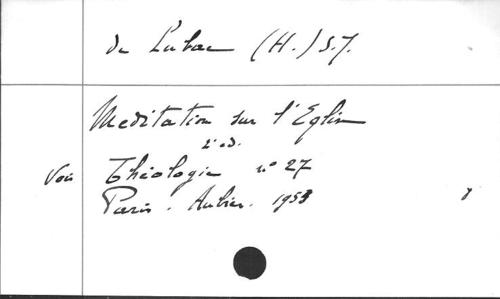 de Lubac (H.) S.J.
Meditation sur l'Eglise
2e ed.
Voir Théologie n° 27
Paris. Aubier. 1953